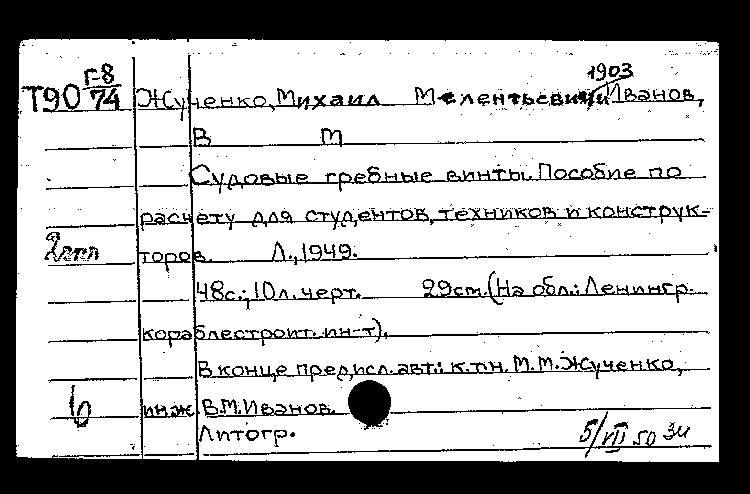 1903
Т90 Г-8/74 Жученко, Михаил Мелентьевич и Иванов,
В М
Судовые гребные винты. Пособие по
расчету для студентов, техников и конструк-
торов. Л., 1949.
48с.; 10л. черт. 29см. (На обл.: Ленингр.
кораблестроит. ин-т).
В конце предисл. авт.: к.т.н. М.М. Жученко,
инж. В.М. Иванов.
Литогр.
5/VII 50